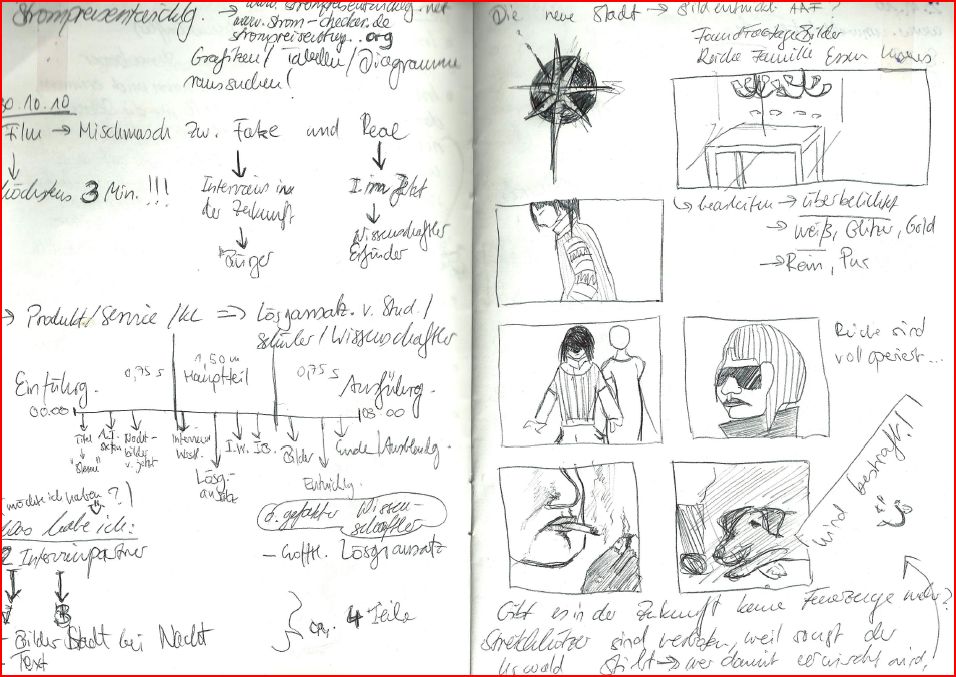 Strompreisentwicklg.
→ www.strompreisentwicklg.net
www.strom-checker.de
strompreisentwg..org
Grafiken/Tabellen/Diagramme
raussuchen!
30.10.10
Film → Mischmasch zw. Fake und Real
höchstens 3 Min. !!!
Interviews in
der Zukunft
Bürger
I. im Jetzt
Wissenschaftler
Erfinder
→ Produkt/Service/kl => Lösgansatz. v. Stud./
Schüler/Wissenschaftler
Einführg.
0,75 s
1,50 m
Hauptteil
0,75 s
Ausführg.
00.00
03.00
Titel
Nacht-
bilder
v. jetzt
Interview
Wiss.
Lösg-
ansatz
I.W.
I.B.
Bilder
Entwicklg.
Ende/Ausblendg.
(möchte ich haben?)
Was habe ich:
2 Interviewpartner
- Bilder Stadt bei Nacht
- Text
6. gefakter Wissen-
schaftler
- hofftl. Lösgsansatz
4 Teile
Die neue Stadt → Bild entwickl.
Reiche Familie Essen
↳ bearbeiten → überbelichtet
→ weiß, Glitzer, Gold
→ Rein, Pur
Reiche sind
voll operiert...
wird bestraft!
Gibt es in der Zukunft keine Feuerzeuge mehr?
Streichhölzer sind verboten, weil sonst der
Urwald stirbt → wer damit erwischt wird,